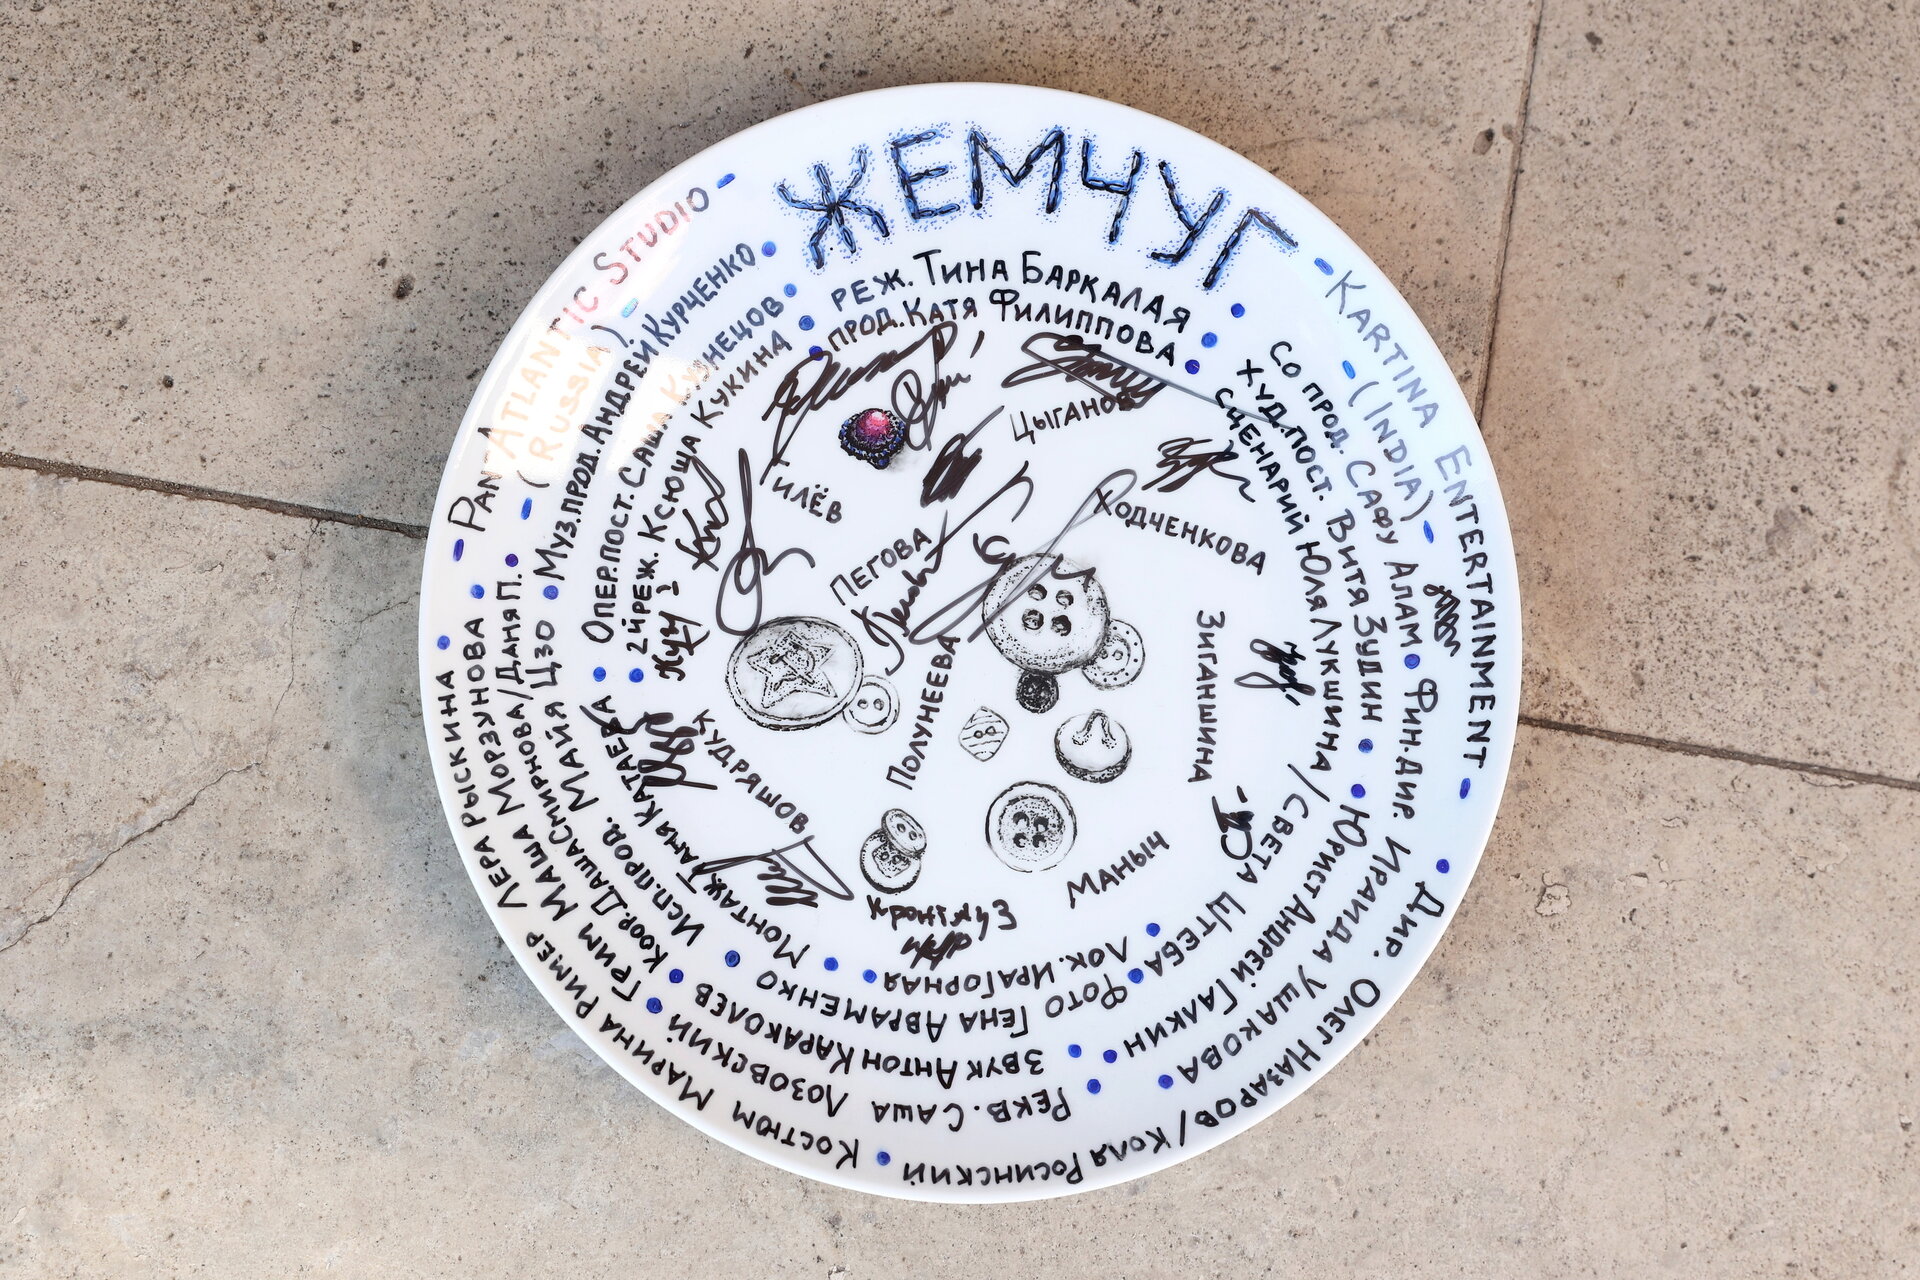 ЖЕМЧУГ
- PANATLANTIC STUDIO -
- ( RUSSIA ) -
- KARTINA ENTERTAINMENT -
- (INDIA) -
РЕЖ. ТИНА БАРКАЛАЯ
ПРОД. КАТЯ ФИЛИППОВА
СО ПРОД. САФУ АЛАМ
ФИН. ДИР. ИРАИДА УШАКОВА
ХУД. ПОСТ. ВИТЯ ЗУДИН
ЮРИСТ АНДРЕЙ ГАЛКИН
СЦЕНАРИЙ ЮЛЯ ЛУКШИНА / СВЕТА ШТЕБА
ДИР. ОЛЕГ НАЗАРОВ / КОЛЯ РОСИНСКИЙ
ЛОК. ИРА ГОРНАЯ
ФОТО ГЕНА АВРАМЕНКО
ЗВУК АНТОН КАРАКОЛЕВ
РЕКВ. САША ЛОЗОВСКИЙ
КОСТЮМ МАРИНА РИМЕР ЛЕРА РЫСКИНА
ГРИМ МАША МОРЗУНОВА
КООР. ДАША СМИРНОВА / ДАНЯ П.
ИСП. ПРОД. МАЙЯ ЦЗО
МОНТАЖ. ТАНЯ КАТАЕВА
МУЗ. ПРОД. АНДРЕЙ КУРЧЕНКО
ОПЕР. ПОСТ. САША КУЗНЕЦОВ
2Й РЕЖ. КСЮША КУКИНА
ЦЫГАНОВ
ГИЛЁВ
ХОДЧЕНКОВА
ПЕГОВА
ЗИГАНШИНА
ПОЛУНЕЕВА
КУДРЯШОВ
МАНЫЧ